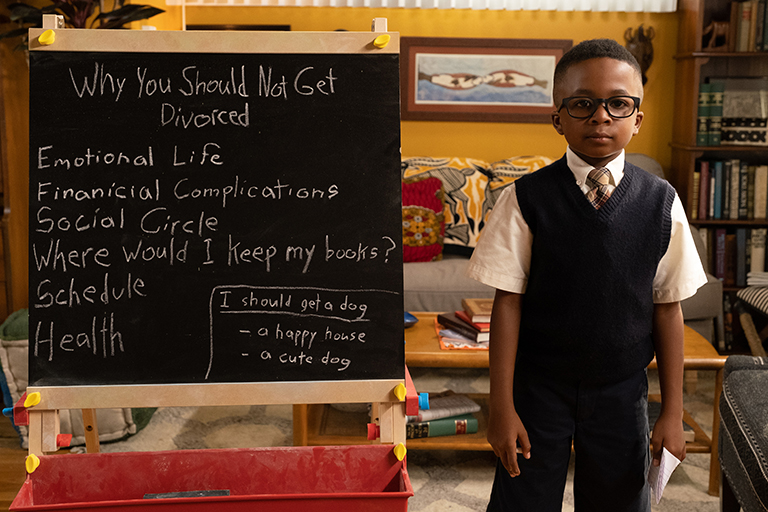 Why You Should Not Get
Divorced
Emotional Life
Finanicial Complications
Social Circle
Where would I keep my books?
Schedule
Health
I should get a dog
- a happy house
- a cute dog